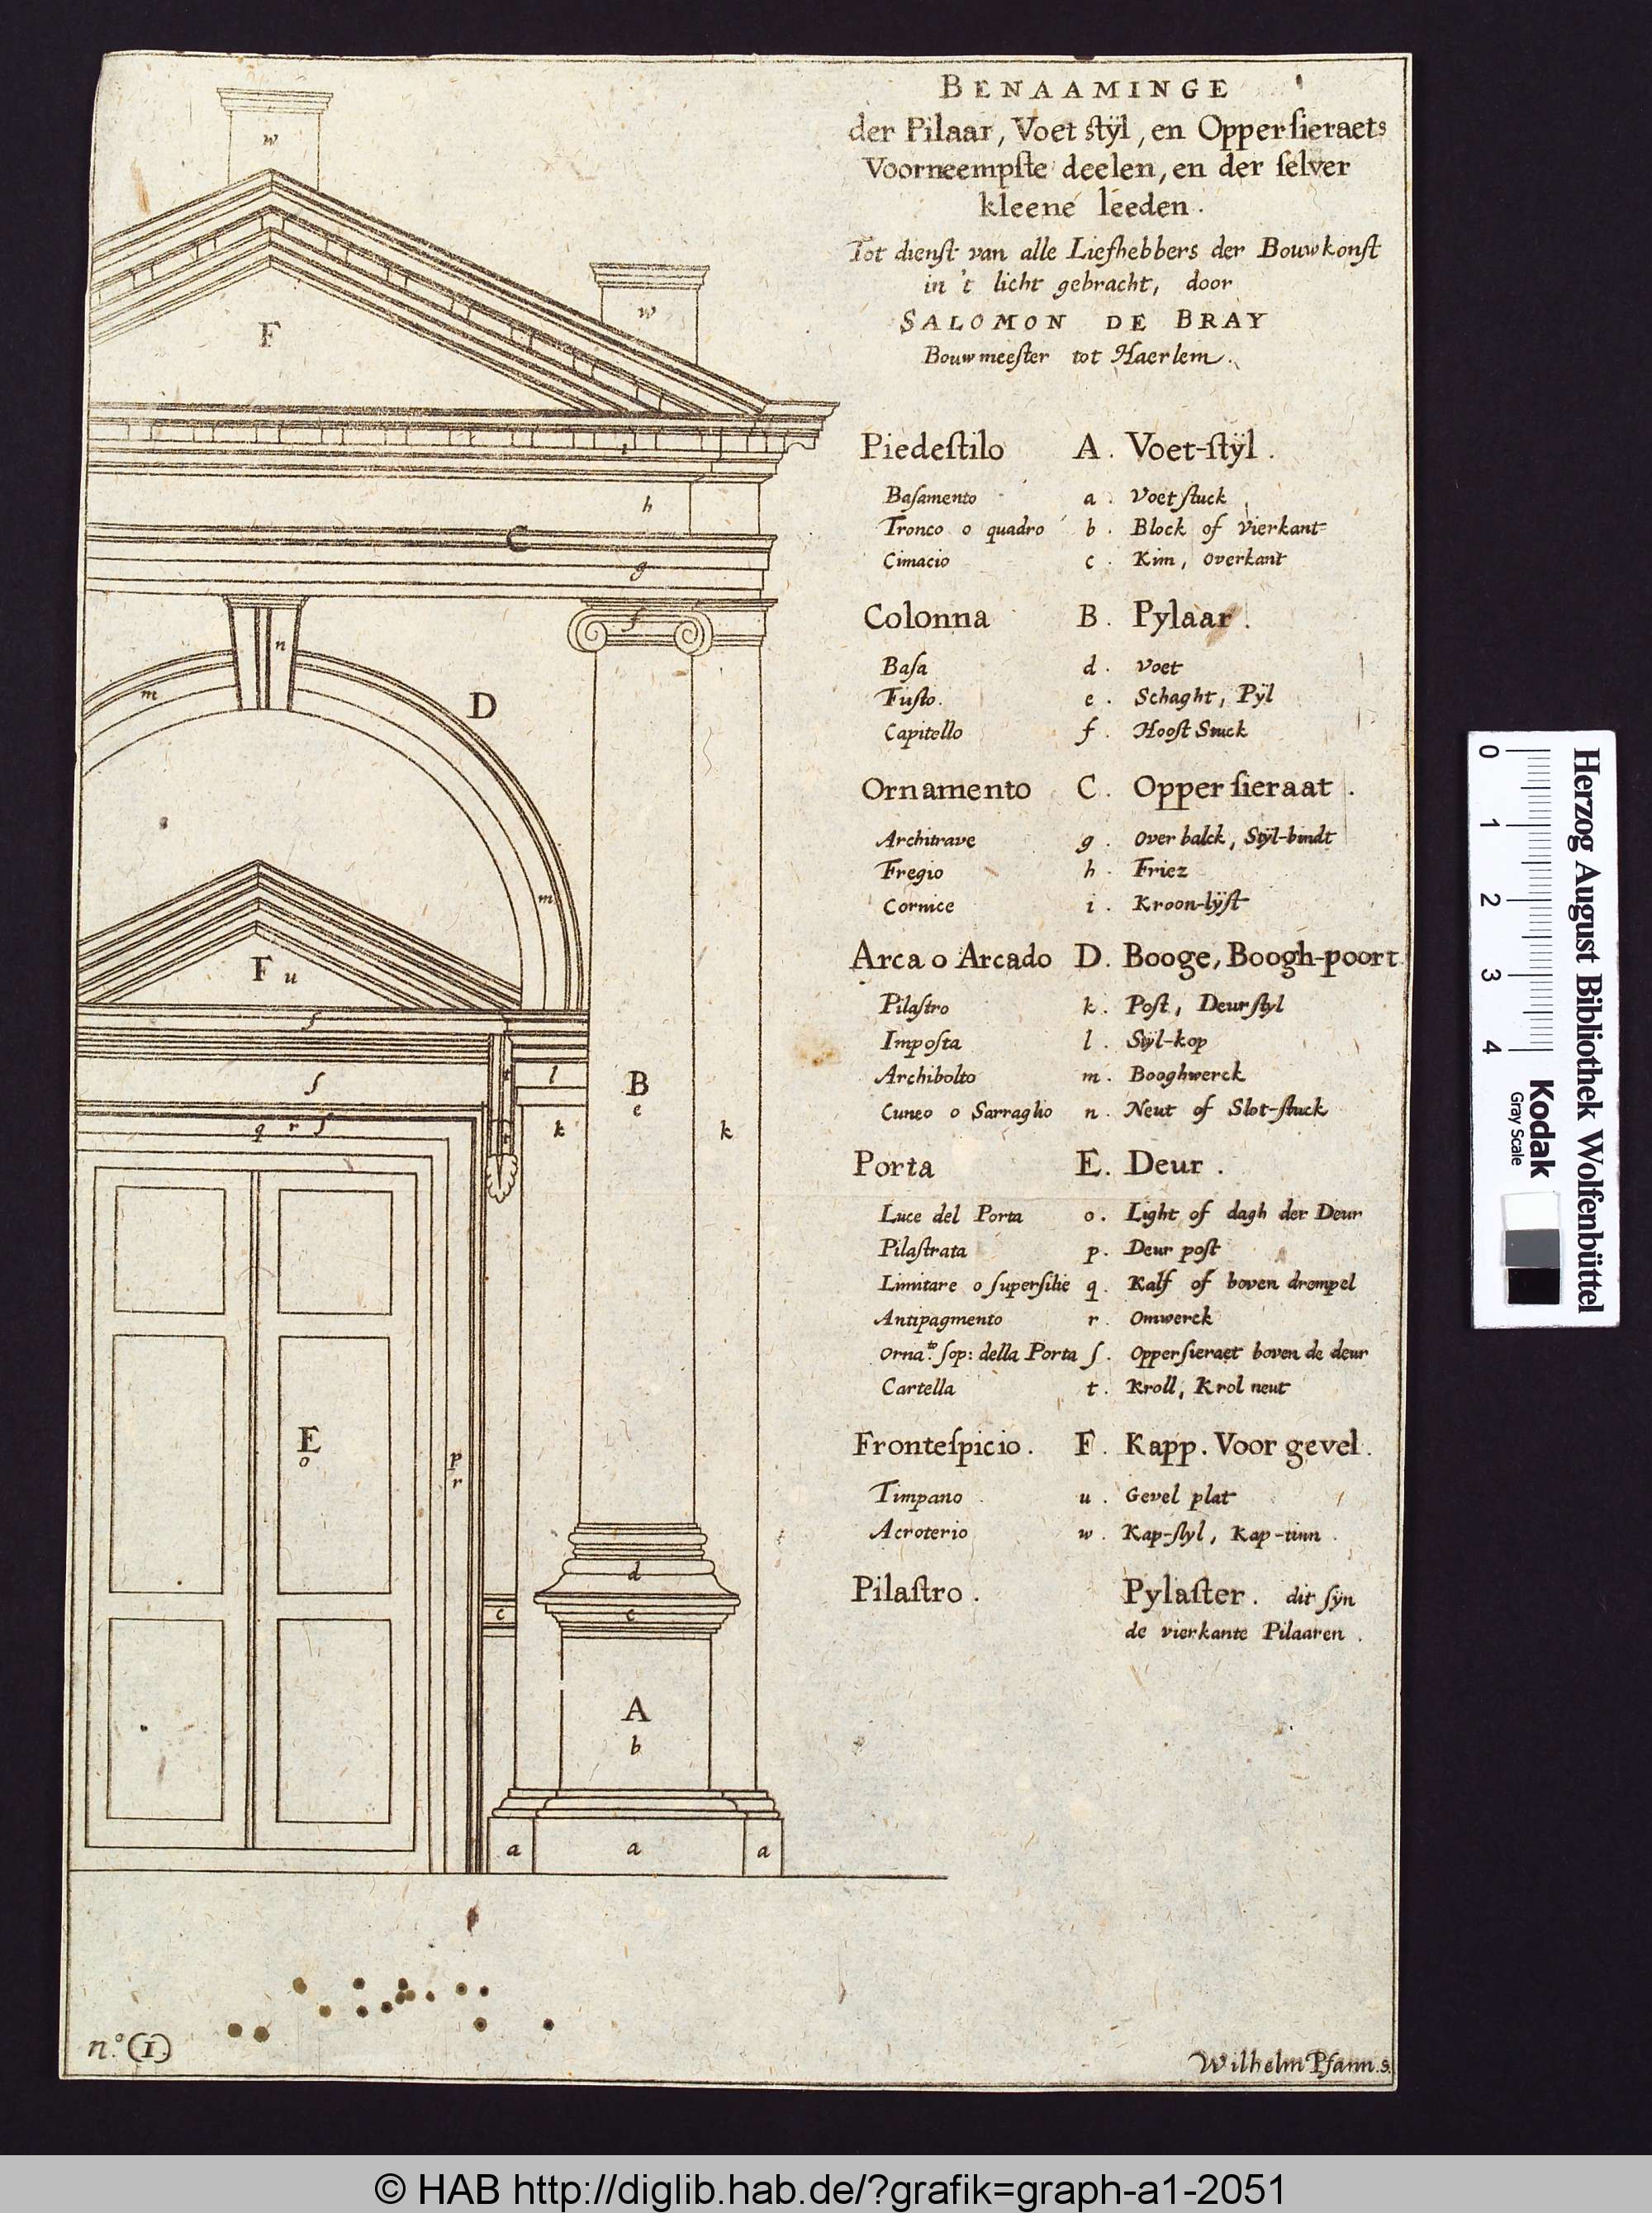 BENAAMINGE
der Pilaar, Voet stÿl, en Opperſieraets
Voorneempſte deelen, en der ſelver
kleene leeden.
Tot dienſt van alle Liefhebbers der Bouwkonſt
in 't licht gebracht, door
SALOMON DE BRAY
Bouwmeeſter tot Haerlem.
Piedeſtilo A. Voet-ſtÿl.
Baſamento a. Voetſtuck
Tronco o quadro b. Block of vierkant
Cimacio c. Kim, overkant
Colonna B. Pylaar.
Baſa d. voet
Fuſto. e. Schaght, Pÿl
Capitello f. Hooft Stuck
Ornamento C. Opperſieraat.
Architrave g. Over balck, Stÿl-bindt
Fregio h. Friez
Cornice i. Kroon-lÿſt
Arca o Arcado D. Booge, Boogh-poort
Pilaſtro k. Poſt, Deurſtyl
Impoſta l. Stÿl-kop
Archibolto m. Booghwerck
Cuneo o Sarraglio n. Neut of Slot-ſtuck
Porta E. Deur.
Luce del Porta o. Light of dagh der Deur
Pilaſtrata p. Deur poſt
Limitare o ſuperſilie q. Kalf of boven drempel
Antipagmento r. Omwerck
Orna.to ſop: della Porta ſ. Opperſieraet boven de deur
Cartella t. Kroll, Krol neut
Fronteſpicio. F. Kapp. Voor gevel.
Timpano u. Gevel plat
Acroterio w. Kap-ſtyl, Kap-tinn.
Pilaſtro. Pylaſter. dit ſÿn
de vierkante Pilaaren.
w
F
w
i
h
C
g
f
n
m
D
m
F u
ſ
ſ
t
l
B
e
q r ſ
t
k
k
E
o
p
r
d
c
c
A
b
a
a
a
n.º (1)
Wilhelm Pfann. s.
0
1
2
3
4
Herzog August Bibliothek Wolfenbüttel
Kodak
Gray Scale
© HAB http://diglib.hab.de/?grafik=graph-a1-2051